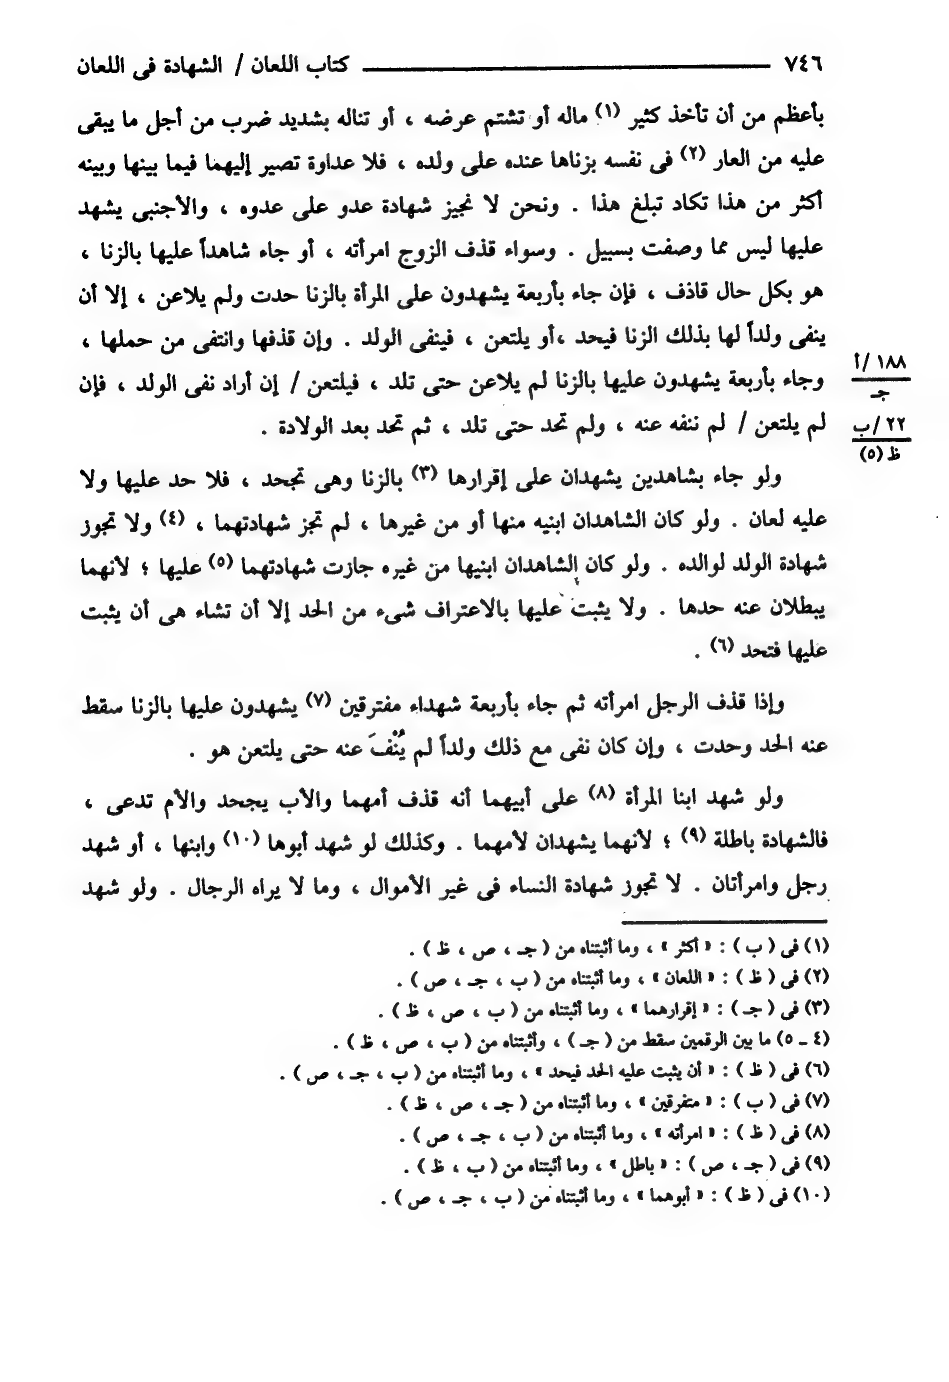 ٧٤٦ ــــــــــ كتاب اللعان / الشهادة فى اللعان
بأعظم من أن تأخذ كثير (١) ماله أو تشتم عرضه ، أو تناله بشديد ضرب من أجل ما يبقى
عليه من العار (٢) فى نفسه بزناها عنده على ولده ، فلا عداوة تصير إليهما فيما بينها وبينه
أكثر من هذا تكاد تبلغ هذا . ونحن لا نجيز شهادة عدو على عدوه ، والأجنبى يشهد
عليها ليس مما وصفت بسبيل . وسواء قذف الزوج امرأته ، أو جاء شاهداً عليها بالزنا ،
هو بكل حال قاذف ، فإن جاء بأربعة يشهدون على المرأة بالزنا حدت ولم يلاعن ، إلا أن
ينفى ولداً لها بذلك الزنا فيحد ،أو يلتعن ، فينفى الولد . وإن قذفها وانتفى من حملها ،
وجاء بأربعة يشهدون عليها بالزنا لم يلاعن حتى تلد ، فيلتعن / إن أراد نفى الولد ، فإن
١٨٨ /أ
جـ
لم يلتعن / لم ننفه عنه ، ولم تحد حتى تلد ، ثم تحد بعد الولادة .
٢٢ /ب
ظ (٥)
ولو جاء بشاهدين يشهدان على إقرارها (٣) بالزنا وهى تجحد ، فلا حد عليها ولا
عليه لعان . ولو كان الشاهدان ابنيه منها أو من غيرها ، لم تجز شهادتهما ، (٤) ولا تجوز
شهادة الولد لوالده . ولو كان الشاهدان ابنيها من غيره جازت شهادتهما (٥) عليها ؛ لأنهما
يبطلان عنه حدها . ولا يثبت عليها بالاعتراف شىء من الحد إلا أن تشاء هى أن يثبت
عليها فتحد (٦) .
وإذا قذف الرجل امرأته ثم جاء بأربعة شهداء مفترقين (٧) يشهدون عليها بالزنا سقط
عنه الحد وحدت ، وإن كان نفى مع ذلك ولداً لم يُنْفَ عنه حتى يلتعن هو .
ولو شهد ابنا المرأة (٨) على أبيهما أنه قذف أمهما والأب يجحد والأم تدعى ،
فالشهادة باطلة (٩) ؛ لأنهما يشهدان لأمهما . وكذلك لو شهد أبوها (١٠) وابنها ، أو شهد
رجل وامرأتان . لا تجوز شهادة النساء فى غير الأموال ، وما لا يراه الرجال . ولو شهد
(١) فى ( ب ) : « أكثر » ، وما أثبتناه من ( جـ ، ص ، ظ ) .
(٢) فى ( ظ ) : « اللعان » ، وما أثبتناه من ( ب ، جـ ، ص ) .
(٣) فى ( جـ ) : « إقرارهما » ، وما أثبتناه من ( ب ، ص ، ظ ) .
(٤ ـ ٥) ما بين الرقمين سقط من ( جـ ) ، وأثبتناه من ( ب ، ص ، ظ ) .
(٦) فى ( ظ ) : « أن يثبت عليه الحد فيحد » ، وما أثبتناه من ( ب ، جـ ، ص ) .
(٧) فى ( ب ) : « متفرقين » ، وما أثبتناه من ( جـ ، ص ، ظ ) .
(٨) فى ( ظ ) : « امرأته » ، وما أثبتناه من ( ب ، جـ ، ص ) .
(٩) فى ( جـ ، ص ) : « باطل » ، وما أثبتناه من ( ب ، ظ ) .
(١٠) فى ( ظ ) : « أبوهما » ، وما أثبتناه من ( ب ، جـ ، ص ) .